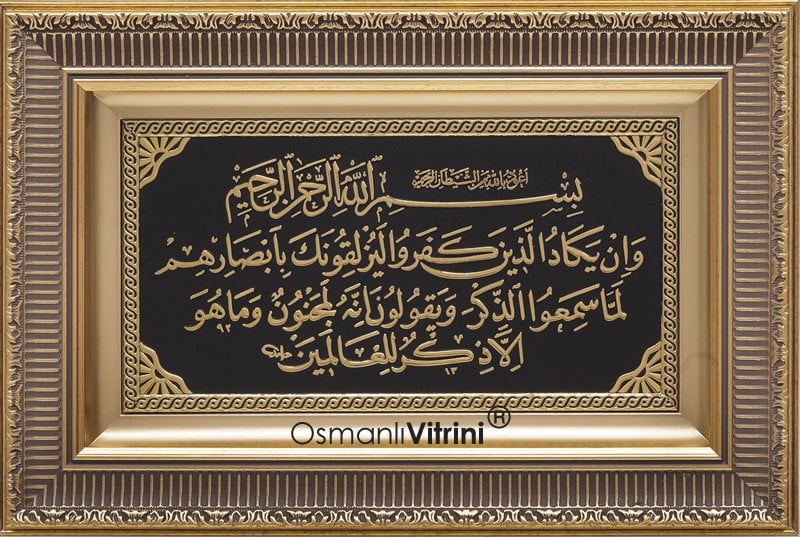 اعوذ بالله من الشيطان الرجيم
بِسْمِ اللّٰهِ الرَّحْمٰنِ الرَّحِيمِ
وَاِنْ يَكَادُ الَّذِينَ كَفَرُوا لَيُزْلِقُونَكَ بِاَبْصَارِهِمْ
لَمَّا سَمِعُوا الذِّكْرَ وَيَقُولُونَ اِنَّهُ لَمَجْنُونٌ وَمَا هُوَ
اِلَّا ذِكْرٌ لِلْعَالَمِينَ
OsmanlıVitrini®